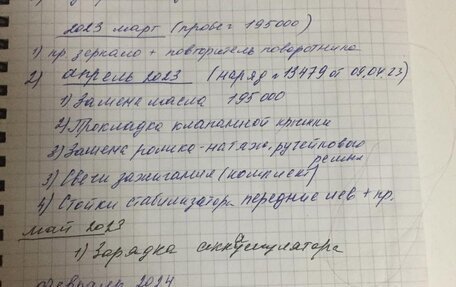 2023 март (пробег 195000)
1) пр. зеркало + повторитель поворотника
2) апрель 2023 (наряд 13479 от 09.04.23)
1) Замена масла 195000
2) Прокладка клапанной крышки
3) Замена ролика-натяж. ручейкового
ремня
3) Свечи зажигания (комплект)
4) Стойки стабилизатора передние лев + пр.
май 2023
1) Зарядка аккумулятора
февраль 2024